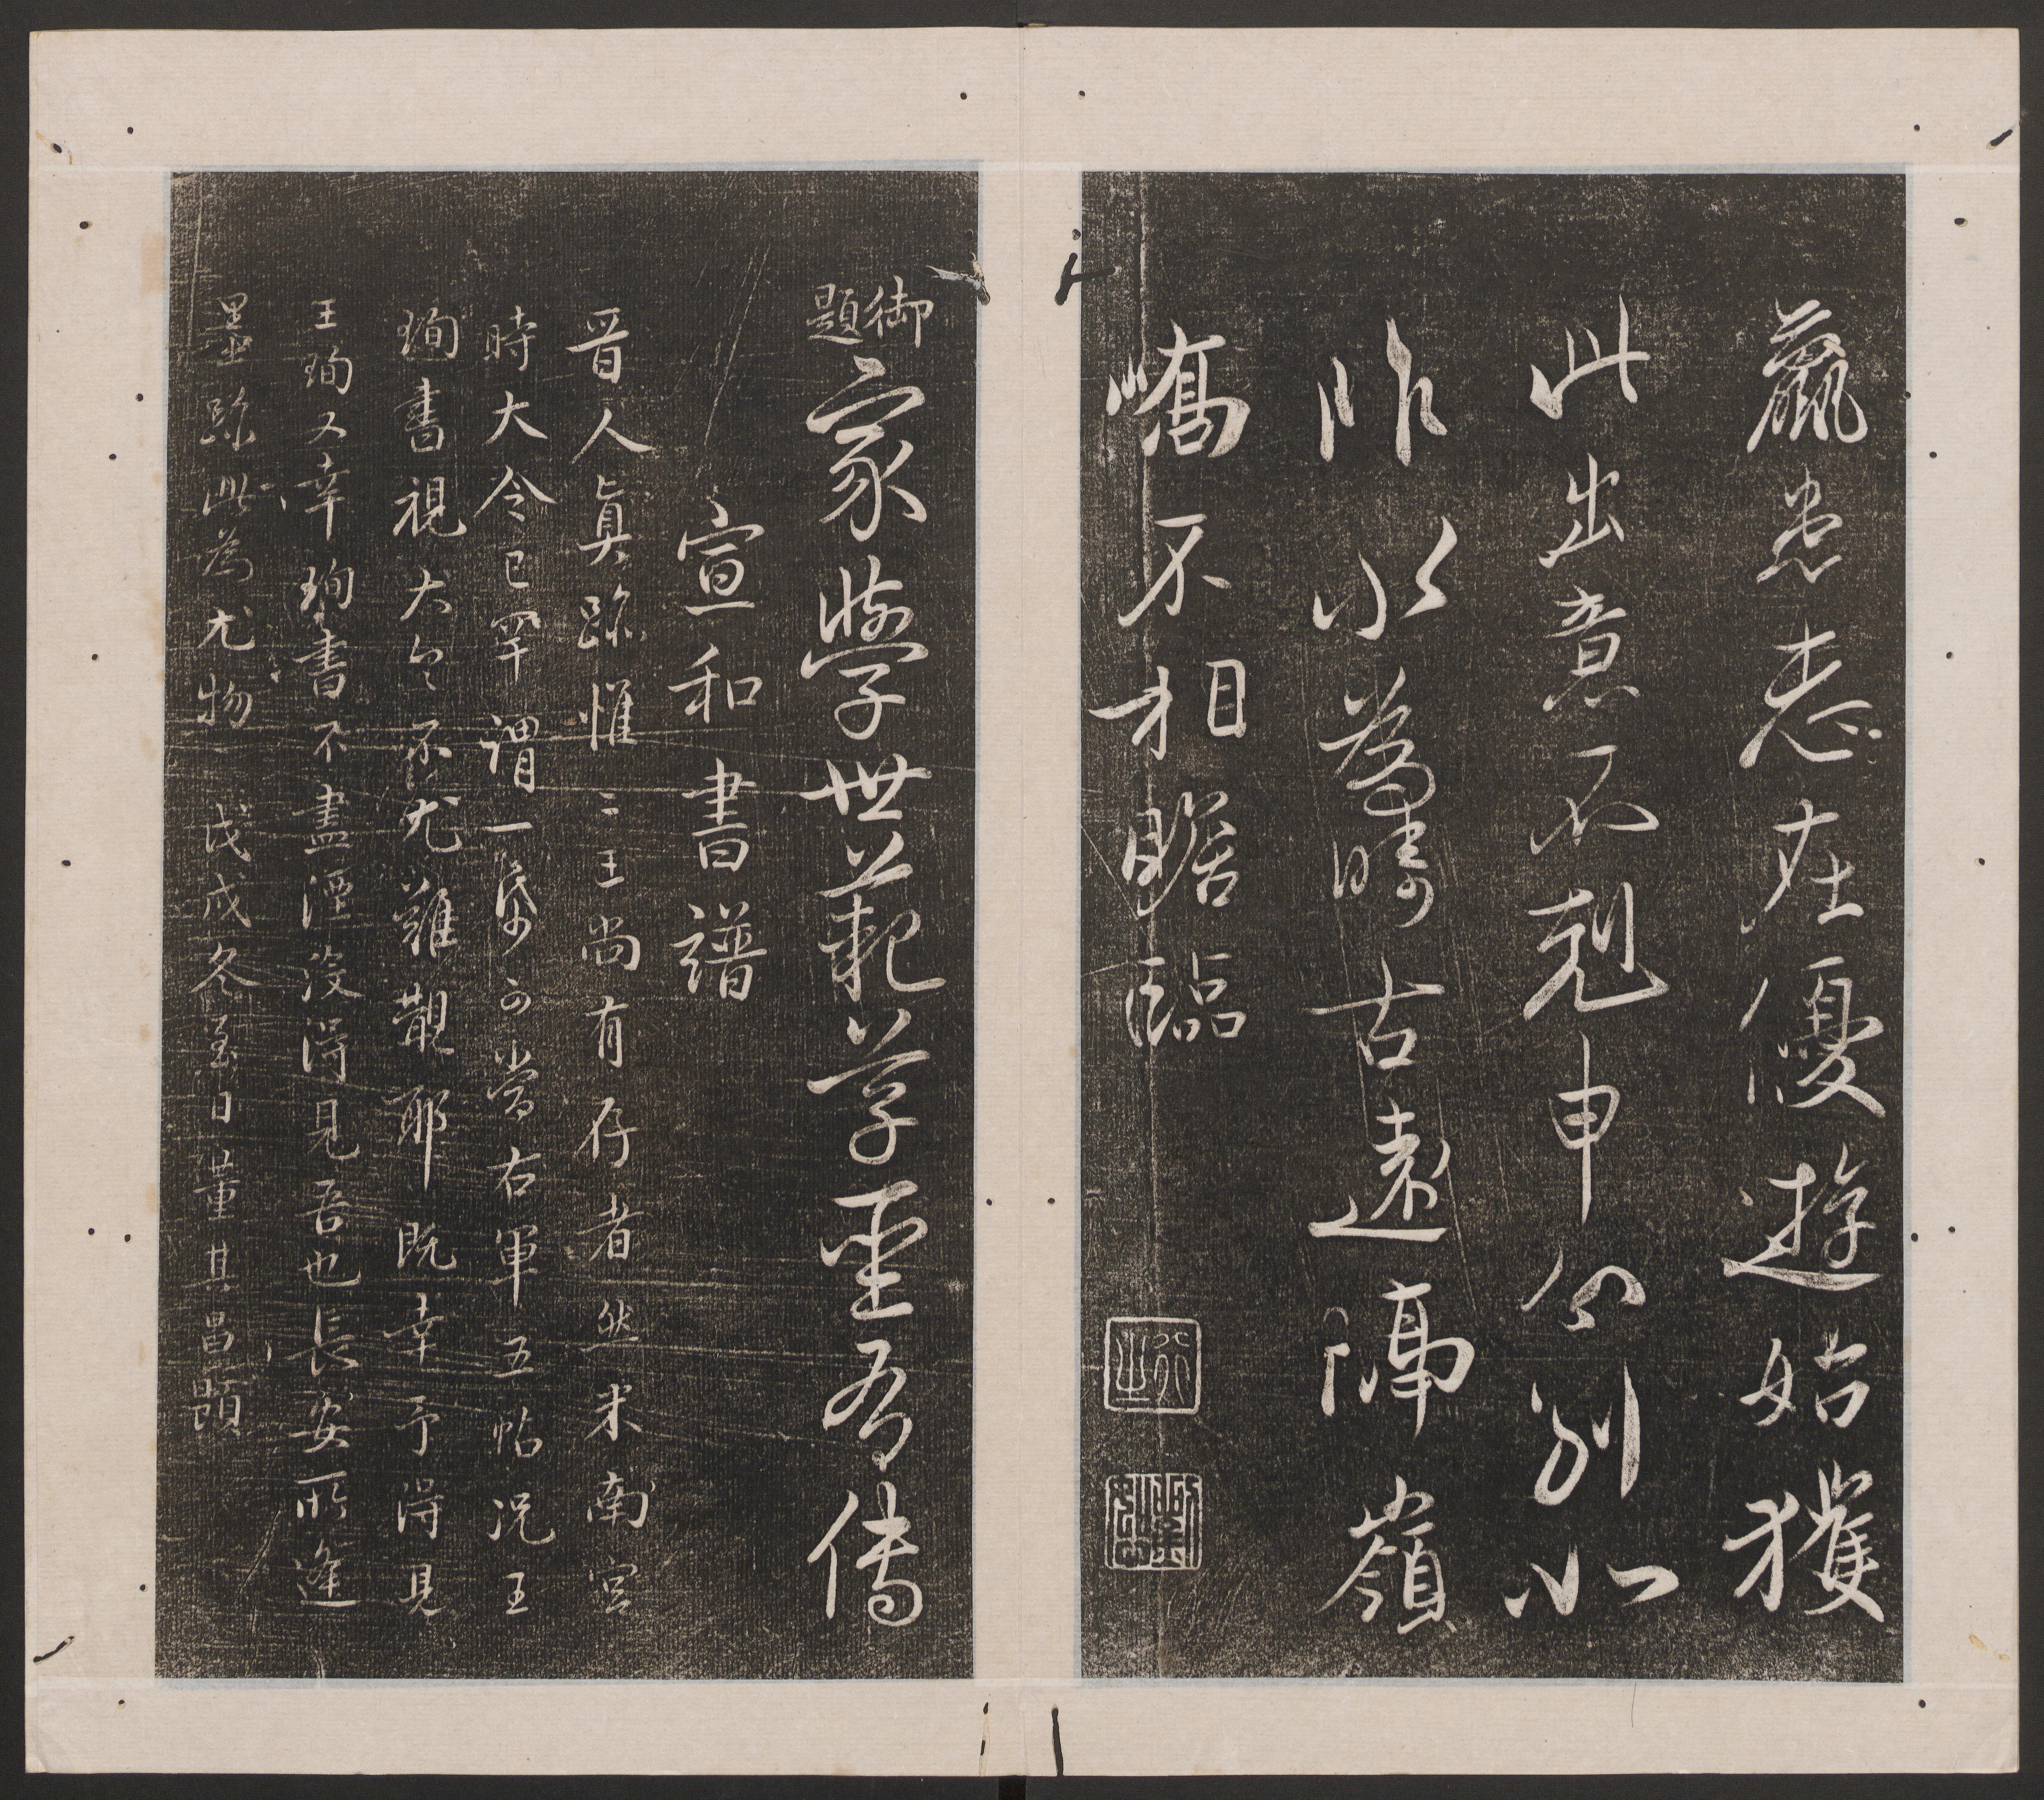 羸患志在優遊始獲
此出意不剋申分別如
昨永爲疇古遠隔嶺
嶠不相瞻臨
御題
家學世範草聖有傳
宣和書譜
晉人真跡惟二王尚有存者然米南宮
時大令已罕謂一紙可當右軍五帖況王
珣書視大令不尤難覯耶既幸予得見
王珣又幸珣書不盡湮沒得見吾也長安所逢
墨跡此為尤物戊戌冬至日董其昌題